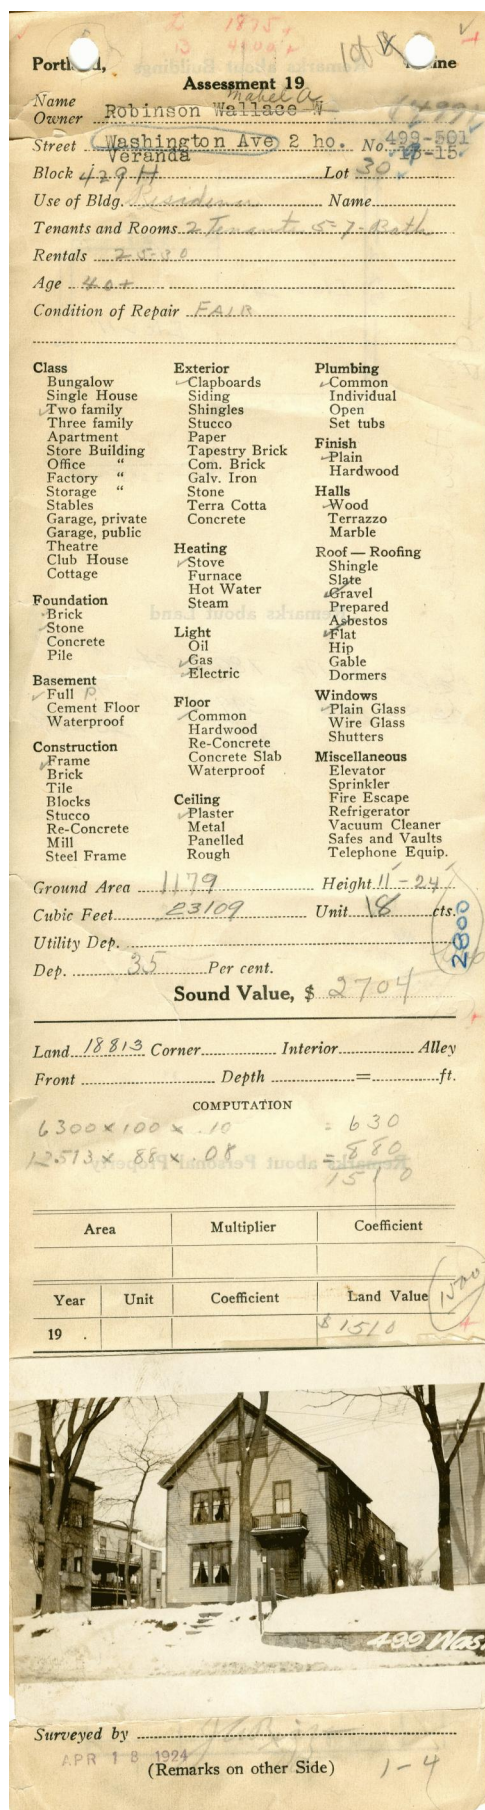 D 1875
B 4400
Portland, Maine
Assessment 19
Mabel A
Name
Owner Robinson Wallace W
Street Washington Ave 2 ho. No. 499-501
Veranda 13-15
Block 429 H Lot 30
Use of Bldg. Residence Name
Tenants and Rooms 2 Tenants 5-7-Bath
Rentals 25-30
Age 40+
Condition of Repair FAIR
Class
Bungalow
Single House
Two family
Three family
Apartment
Store Building
Office "
Factory "
Storage "
Stables
Garage, private
Garage, public
Theatre
Club House
Cottage
Foundation
Brick
Stone
Concrete
Pile
Basement
Full P.
Cement Floor
Waterproof
Construction
Frame
Brick
Tile
Blocks
Stucco
Re-Concrete
Mill
Steel Frame
Exterior
Clapboards
Siding
Shingles
Stucco
Paper
Tapestry Brick
Com. Brick
Galv. Iron
Stone
Terra Cotta
Concrete
Heating
Stove
Furnace
Hot Water
Steam
Light
Oil
Gas
Electric
Floor
Common
Hardwood
Re-Concrete
Concrete Slab
Waterproof
Ceiling
Plaster
Metal
Panelled
Rough
Plumbing
Common
Individual
Open
Set tubs
Finish
Plain
Hardwood
Halls
Wood
Terrazzo
Marble
Roof — Roofing
Shingle
Slate
Gravel
Prepared
Asbestos
Flat
Hip
Gable
Dormers
Windows
Plain Glass
Wire Glass
Shutters
Miscellaneous
Elevator
Sprinkler
Fire Escape
Refrigerator
Vacuum Cleaner
Safes and Vaults
Telephone Equip.
Ground Area 1179 Height 11'-24'
Cubic Feet 23109 Unit 18 cts.
Utility Dep.
2800
Dep. 35 Per cent.
Sound Value, $ 2704
Land 18813 Corner Interior Alley
Front Depth = ft.
COMPUTATION
6300 x 100 x .10 = 630
12513 x 88 x .08 = 880
1510
Area Multiplier Coefficient
Year Unit Coefficient Land Value
1500
19 . $ 1510
499 Was
Surveyed by
APR 18 1924
(Remarks on other Side)
1-4